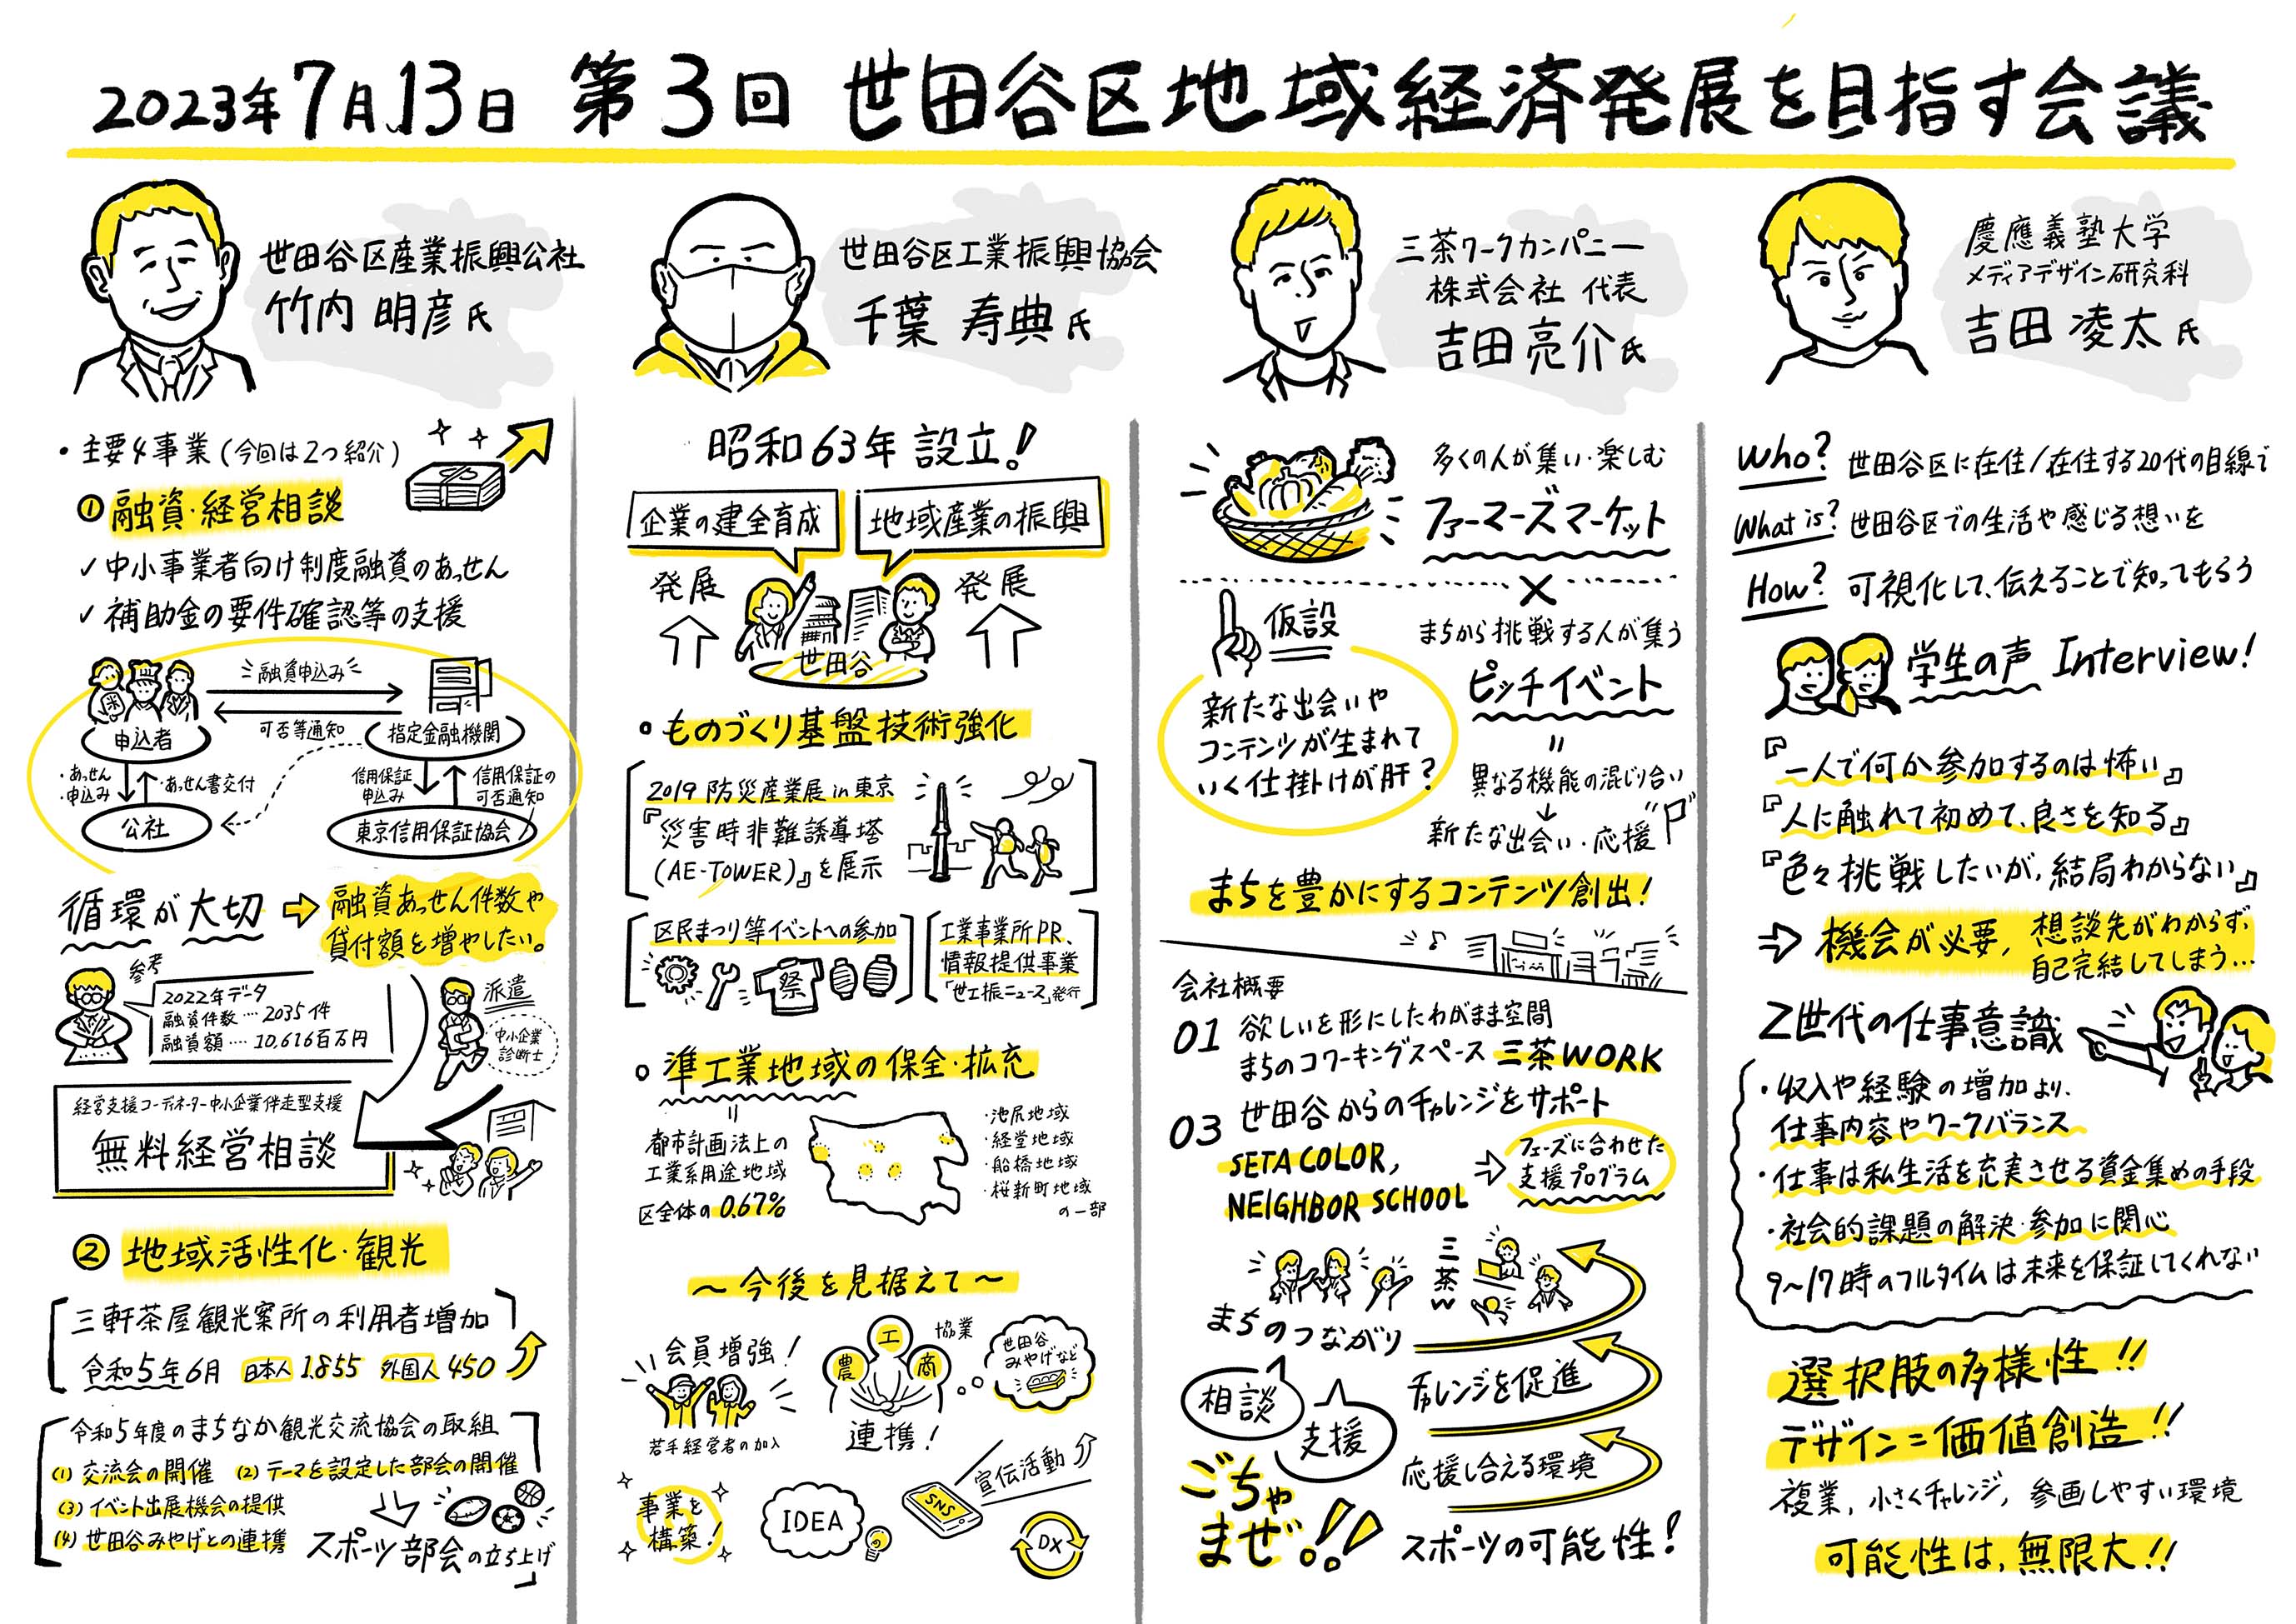 2023年7月13日 第3回 世田谷区地域経済発展を目指す会議
世田谷区産業振興公社
竹内 明彦氏
・主要4事業(今回は2つ紹介)
① 融資・経営相談
✓中小事業者向け制度融資のあっせん
✓補助金の要件確認等の支援
融資申込み
可否等通知
申込者
指定金融機関
・あっせん
・申込み
・あっせん書交付
信用保証
申込み
信用保証の
可否通知
公社
東京信用保証協会
循環が大切
融資あっせん件数や
貸付額を増やしたい。
参考
2022年データ
融資件数…2035件
融資額‥‥10,616百万円
派遣
中小企業
診断士
経営支援コーディネーター中小企業伴走型支援
無料経営相談
② 地域活性化・観光
三軒茶屋観光案所の利用者増加
令和5年6月 日本人 1855 外国人 450
令和5年度のまちなか観光交流協会の取組
(1) 交流会の開催 (2) テーマを設定した部会の開催
(3) イベント出展機会の提供
(4) 世田谷みやげとの連携
スポーツ部会の立ち上げ
世田谷区工業振興協会
千葉 寿典氏
昭和63年設立!
企業の建全育成
地域産業の振興
発展
発展
世田谷
・ものづくり基盤技術強化
2019 防災産業展 in 東京
『災害時非難誘導塔
(AE-TOWER)』を展示
区民まつり等イベントへの参加
祭
工業事業所PR、
情報提供事業
「世工振ニュース」発行
・準工業地域の保全・拡充
=
都市計画法上の
工業系用途地域
区全体の0.67%
・池尻地域
・経堂地域
・船橋地域
・桜新町地域
の一部
〜今後を見据えて〜
会員増強!
若手経営者の加入
農
工
商
協業
連携!
世田谷
みやげなど
事業を
構築!
IDEA
SNS
宣伝活動
DX
三茶ワークカンパニー
株式会社 代表
吉田亮介氏
多くの人が集い・楽しむ
ファーマーズマーケット
×
仮設
新たな出会いや
コンテンツが生まれて
いく仕掛けが肝?
まちから挑戦する人が集う
ピッチイベント
=
異なる機能の混じり合い
↓
新たな出会い・応援
まちを豊かにするコンテンツ創出!
会社概要
01 欲しいを形にしたわがまま空間
まちのコワーキングスペース 三茶WORK
03 世田谷からのチャレンジをサポート
SETA COLOR,
NEIGHBOR SCHOOL
フェーズに合わせた
支援プログラム
三茶W
まちのつながり
相談
支援
チャレンジを促進
応援し合える環境
ごちゃ
まぜ!!
スポーツの可能性!
慶應義塾大学
メディアデザイン研究科
吉田 凌太氏
Who? 世田谷区に在住/在住する20代の目線で
What is? 世田谷区での生活や感じる想いを
How? 可視化して、伝えることで知ってもらう
学生の声 Interview!
『一人で何か参加するのは怖い』
『人に触れて初めて、良さを知る』
『色々挑戦したいが、結局わからない』
⇒機会が必要, 想談先がわからず、
自己完結してしまう…
Z世代の仕事意識
・収入や経験の増加より、
仕事内容やワークバランス
・仕事は私生活を充実させる資金集めの手段
・社会的課題の解決・参加に関心
9〜17時のフルタイムは未来を保証してくれない
選択肢の多様性!!
デザイン=価値創造!!
複業, 小さくチャレンジ, 参画しやすい環境
可能性は,無限大!!